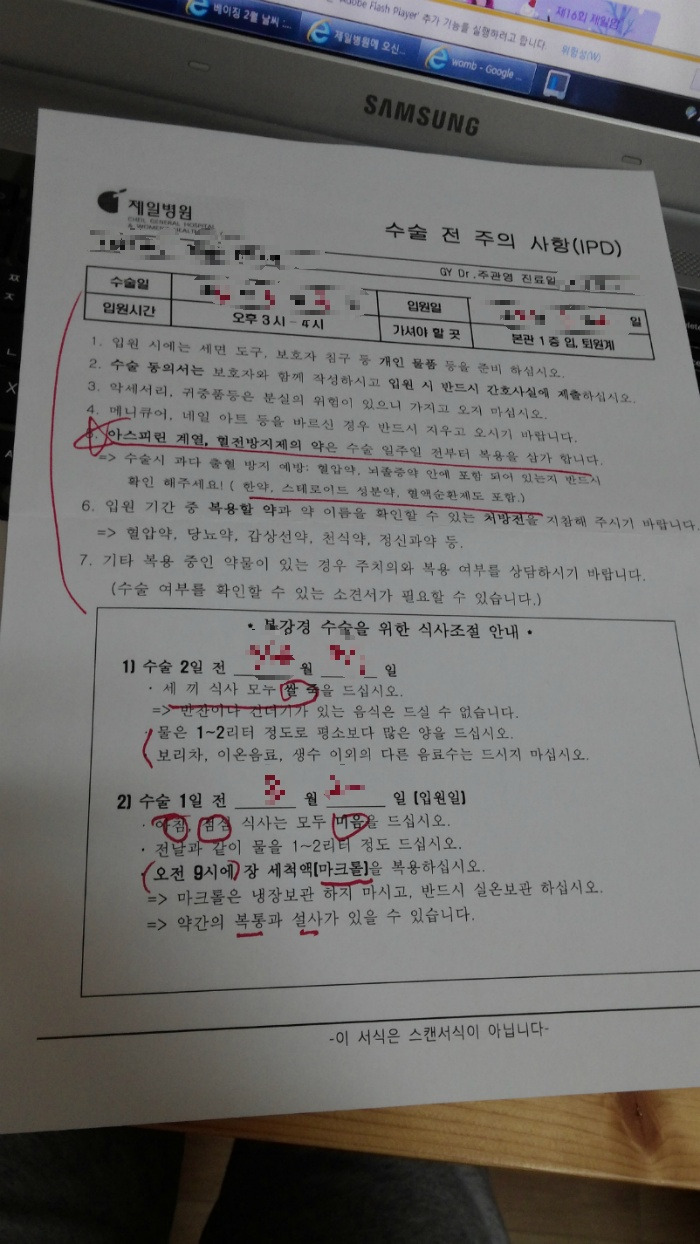 Adobe Flash Player' 추가 기능을 실행하려고 합니다. 위험성(W)
제16회 제일인
베이징 2월 날씨 :...
제일병원에 오신...
womb - Google ...
SAMSUNG
제일병원
CHEIL GENERAL HOSPITAL
& WOMEN'S HEALTH
수술 전 주의 사항(IPD)
GY Dr.주관영 진료일
수술일 입원일 일
입원시간 오후 3시 - 4시 가셔야 할 곳 본관 1층 입, 퇴원계
1. 입원 시에는 세면 도구, 보호자 침구 등 개인 물품 등을 준비 하십시오.
2. 수술 동의서는 보호자와 함께 작성하시고 입원 시 반드시 간호사실에 제출하십시오.
3. 악세서리, 귀중품등은 분실의 위험이 있으니 가지고 오지 마십시오.
4. 메니큐어, 네일 아트 등을 바르신 경우 반드시 지우고 오시기 바랍니다.
5. 아스피린 계열, 혈전방지제의 약은 수술 일주일 전부터 복용을 삼가 합니다.
=> 수술시 과다 출혈 방지 예방: 혈압약, 뇌졸중약 안에 포함 되어 있는지 반드시
확인 해주세요! ( 한약, 스테로이드 성분약, 혈액순환제도 포함.)
6. 입원 기간 중 복용할 약과 약 이름을 확인할 수 있는 처방전을 지참해 주시기 바랍니다.
=> 혈압약, 당뇨약, 갑상선약, 천식약, 정신과약 등.
7. 기타 복용 중인 약물이 있는 경우 주치의와 복용 여부를 상담하시기 바랍니다.
(수술 여부를 확인할 수 있는 소견서가 필요할 수 있습니다.)
• 복강경 수술을 위한 식사조절 안내 •
1) 수술 2일 전 월 일
· 세 끼 식사 모두 쌀 죽을 드십시오.
=> 반찬이나 건더기가 있는 음식은 드실 수 없습니다.
물은 1~2리터 정도로 평소보다 많은 양을 드십시오.
보리차, 이온음료, 생수 이외의 다른 음료수는 드시지 마십시오.
2) 수술 1일 전 월 일 (입원일)
· 아침, 점심 식사는 모두 미음을 드십시오.
· 전날과 같이 물을 1~2리터 정도 드십시오.
· 오전 9시에 장 세척액(마크롤)을 복용하십시오.
=> 마크롤은 냉장보관 하지 마시고, 반드시 실온보관 하십시오.
=> 약간의 복통과 설사가 있을 수 있습니다.
-이 서식은 스캔서식이 아닙니다-